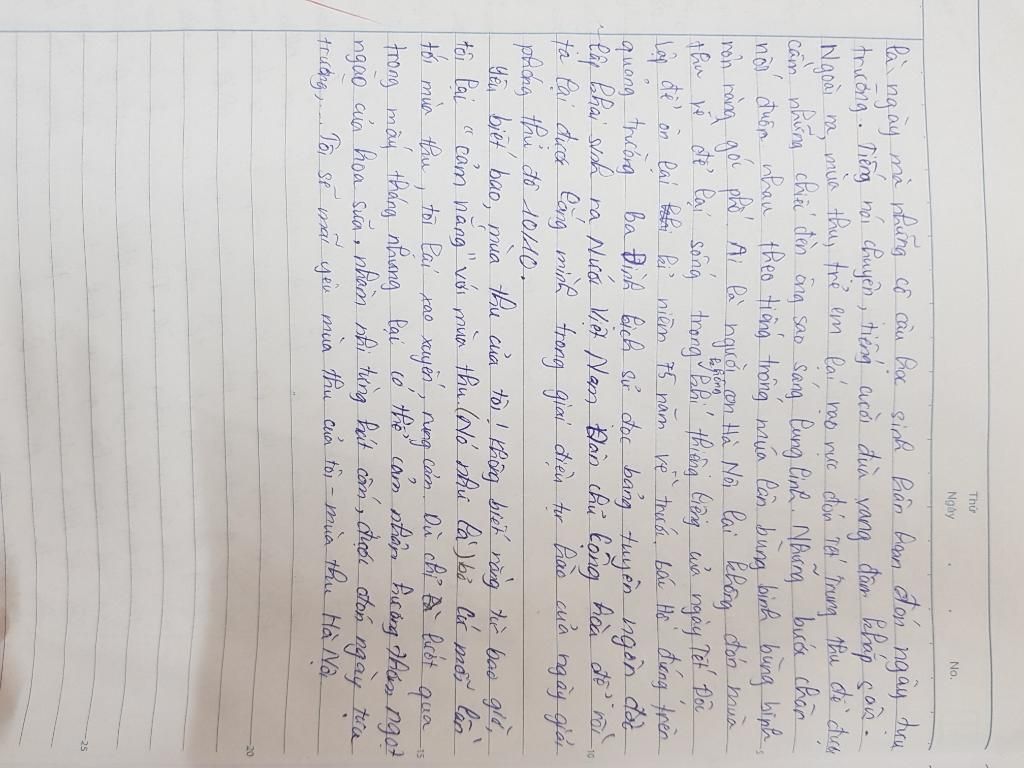 Thứ
Ngày . . No.
là ngày mà những cô cậu học sinh hân hoan đón ngày tựu
trường. Tiếng nói chuyện, tiếng cười đùa vang dân khắp sân.
Ngoài ra, mùa thu, trẻ em lại nao nức đón rời trung thu để được
cầm những chiếc đèn ông sao sáng lung linh. Những bước chân
nối đuôn nhau theo tiếng trống múa lân bùng bình bùng bình
rộn ràng góc phố. Ai là người con Hà Nội lại không đón mùa
thu về để lại sống trong không khí thiêng liêng của ngày Tết Độc
lập để ôn lại kỉ niệm 75 năm về trước bác Hồ đứng trên
quảng trường Ba Đình lịch sử đọc bảng tuyên ngôn độc
lập khai sinh ra Nước Việt Nam Dân chủ Cộng hòa để rồi
ta lại được lắng mình trong giai điệu tự hào của ngày giải
phóng thủ đô 10/10.
Yêu biết bao, mùa thu của tôi! Không biết rằng từ bao giờ,
tôi lại "cảm nắng" với mùa thu (Nó như là) bở cứ mỗi lần
tới mùa thu, tôi lại xao xuyến, rung cảm. Dù chỉ lướt qua
trong mấy tháng nhưng lại có thể cảm nhận hương thơm ngọt
ngào của hoa sữa, nhâm nhi từng hạt cốm, được đón ngày tựu
trường,... Tôi sẽ mãi yêu mùa thu của tôi - mùa thu Hà Nội.
5
10
15
20
25